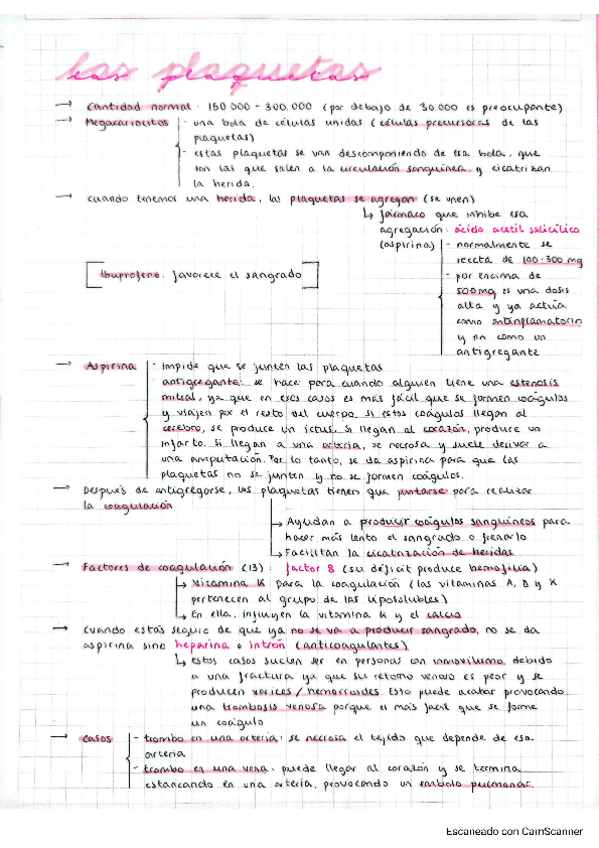 las plaquetas
→ Cantidad normal: 150.000 - 300.000 (por debajo de 30.000 es preocupante)
→ Megacariocitos - una bola de células unidas (células precursoras de las
plaquetas)
- estas plaquetas se van descomponiendo de esa bola, que
son las que salen a la circulación sanguínea y cicatrizan
la herida.
→ cuando tenemos una herida, las plaquetas se agregan (se unen)
↳ fármaco que inhibe esa
agregación: ácido acetil salicílico
(aspirina) - normalmente se
receta de 100-300 mg
[Ibuprofeno: favorece el sangrado]
- por encima de
500mg es una dosis
alta y ya actúa
como antiinflamatorio
y no como un
antigregante
→ Aspirina - Impide que se junten las plaquetas
- antigregante: se hace para cuando alguien tiene una estenosis
mitral, ya que en esos casos es más fácil que se formen coágulos
y viajen por el resto del cuerpo. Si estos coágulos llegan al
cerebro, se produce un ictus, si llegan al corazón, produce un
infarto. Si llegan a una arteria, se necrosa y suele derivar a
una amputación. Por lo tanto, se da aspirina para que las
plaquetas no se junten y no se formen coágulos.
→ Después de antigregarse, las plaquetas tienen que juntarse para realizar
la coagulación
↳ Ayudan a producir coágulos sanguíneos para
hacer más lento el sangrado o frenarlo
↳ Facilitan la cicatrización de heridas
→ Factores de coagulación (13): factor 8 (su déficit produce hemofilia)
↳ Vitamina K para la coagulación (las vitaminas A, D y K
pertenecen al grupo de las liposolubles)
↳ En ella, influyen la vitamina K y el calcio
→ Cuando estás seguro de que ya no se va a producir sangrado, no se da
aspirina sino heparina o (anticoagulantes)
↳ Estos casos suelen ser en personas con inmovilismo debido
a una fractura ya que su retorno venoso es peor y se
producen varices/hemorroides. Esto puede acabar provocando
una trombosis venosa porque es más fácil que se forme
un coágulo
→ Casos - trombo en una arteria: se necrosa el tejido que depende de esa
arteria
- trombo en una vena: puede llegar al corazón y se termina
estancando en una arteria, provocando un embolo pulmonar.
Escaneado con CamScanner